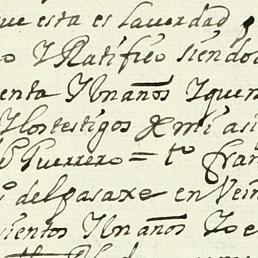 ue esta es laverdad
o Y Ratifico siendo
enta Y Un años Y quer
Y los testigos de mi asi
Guerrero = to fran
del pasaxe en Vein
sientos Y Un años Yo e